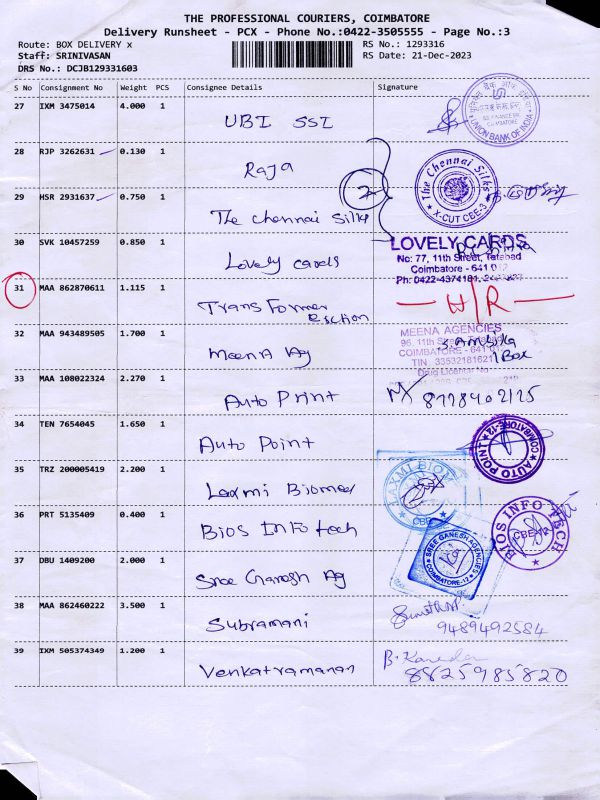 THE PROFESSIONAL COURIERS, COIMBATORE
Delivery Runsheet - PCX - Phone No.:0422-3505555 - Page No.:3
Route: BOX DELIVERY x
RS No.: 1293316
Staff: SRINIVASAN
RS Date: 21-Dec-2023
DRS No.: DCJB129331603
S No Consignment No Weight PCS Consignee Details Signature
27 IXM 3475014 4.000 1 UBI SSI
UNION BANK OF INDIA
28 RJP 3262631 0.130 1 Raja
The Chennai Silks
X-CUT CBE-3
29 HSR 2931637 0.750 1 The chennai silks
2
30 SVK 10457259 0.850 1 Lovely cards
LOVELY CARDS
No: 77, 11th Street, Tatabad
Coimbatore - 641 012
Ph: 0422-4374181,
31 MAA 862870611 1.115 1 Trans Former
Rection
H/R
32 MAA 943489505 1.700 1 Meena Ag
MEENA AGENCIES
96, 11th Street
COIMBATORE - 641
TIN 33532181621
Drug License No
1 Box
33 MAA 108022324 2.270 1 Auto Print
8778402125
34 TEN 7654045 1.650 1 Auto Point
AUTO POINT
COIMBATORE-12
35 TRZ 200005419 2.200 1 Laxmi Biomed
LAXMI BIOM
CBE
36 PRT 5135409 0.400 1 Bios INFO tech
BIOS INFO TECH
CBE-12
37 DBU 1409200 2.000 1 Sree Ganesh Ag
SREE GANESH AGENCIES
COIMBATORE-12
38 MAA 862460222 3.500 1 Subramani
9489492584
39 IXM 505374349 1.200 1 Venkatramanan
8825985820